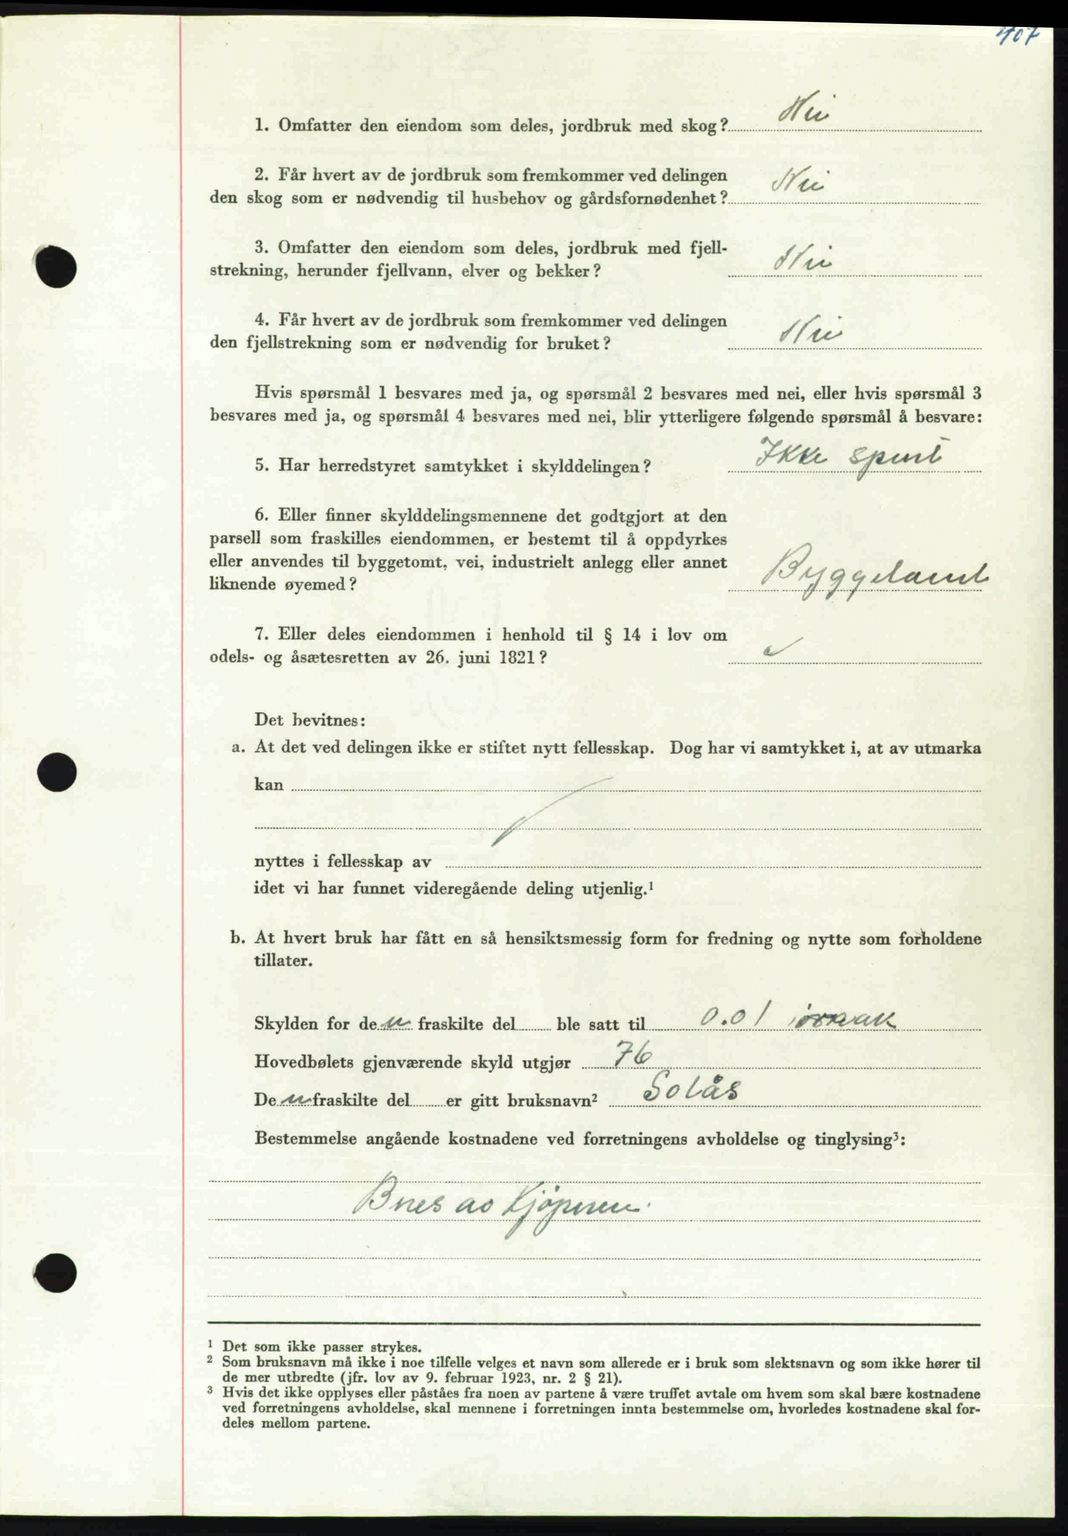 407
1. Omfatter den eiendom som deles, jordbruk med skog? Nei
2. Får hvert av de jordbruk som fremkommer ved delingen
den skog som er nødvendig til husbehov og gårdsfornødenhet? Nei
3. Omfatter den eiendom som deles, jordbruk med fjell-
strekning, herunder fjellvann, elver og bekker? Nei
4. Får hvert av de jordbruk som fremkommer ved delingen
den fjellstrekning som er nødvendig for bruket? Nei
Hvis spørsmål 1 besvares med ja, og spørsmål 2 besvares med nei, eller hvis spørsmål 3
besvares med ja, og spørsmål 4 besvares med nei, blir ytterligere følgende spørsmål å besvare:
5. Har herredstyret samtykket i skylddelingen? Ikke spurt
6. Eller finner skylddelingsmennene det godtgjort at den
parsell som fraskilles eiendommen, er bestemt til å oppdyrkes
eller anvendes til byggetomt, vei, industrielt anlegg eller annet
liknende øyemed?
7. Eller deles eiendommen i henhold til § 14 i lov om
odels- og åsætesretten av 26. juni 1821?
Det bevitnes:
a. At det ved delingen ikke er stiftet nytt fellesskap. Dog har vi samtykket i, at av utmarka
kan
nyttes i fellesskap av
idet vi har funnet videregående deling utjenlig.¹
b. At hvert bruk har fått en så hensiktsmessig form for fredning og nytte som forholdene
tillater.
Skylden for den fraskilte del ble satt til 0.01
Hovedbølets gjenværende skyld utgjør 76
Den fraskilte del er gitt bruksnavn² Solås
Bestemmelse angående kostnadene ved forretningens avholdelse og tinglysing³:
Bæres av Kjøperen.
¹ Det som ikke passer strykes.
² Som bruksnavn må ikke i noe tilfelle velges et navn som allerede er i bruk som slektsnavn og som ikke hører til
de mer utbredte (jfr. lov av 9. februar 1923, nr. 2 § 21).
³ Hvis det ikke opplyses eller påståes fra noen av partene å være truffet avtale om hvem som skal bære kostnadene
ved forretningens avholdelse, skal mennene i forretningen innta bestemmelse om, hvorledes kostnadene skal for-
deles mellom partene.